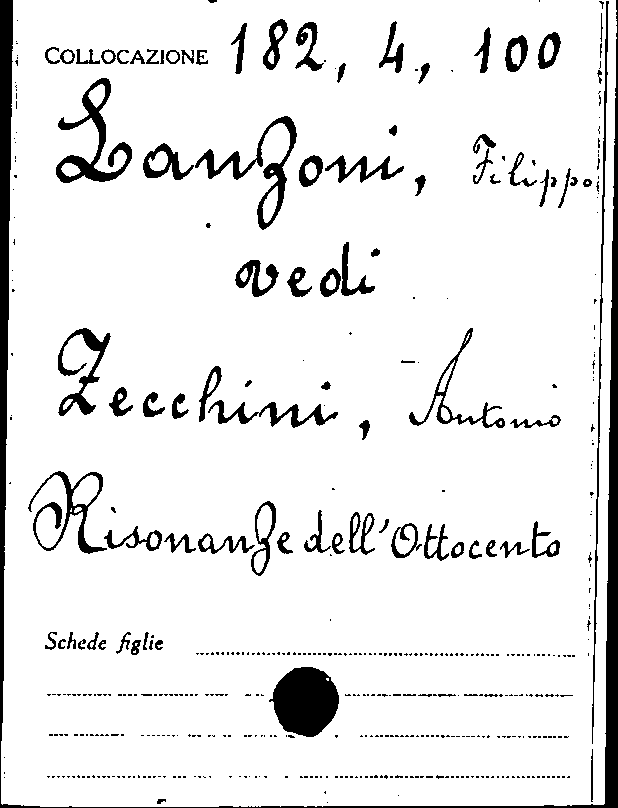 COLLOCAZIONE 182, 4, 100
Lanzoni, Filippo
vedi
Zecchini, Antonio
Risonanze dell'Ottocento
Schede figlie